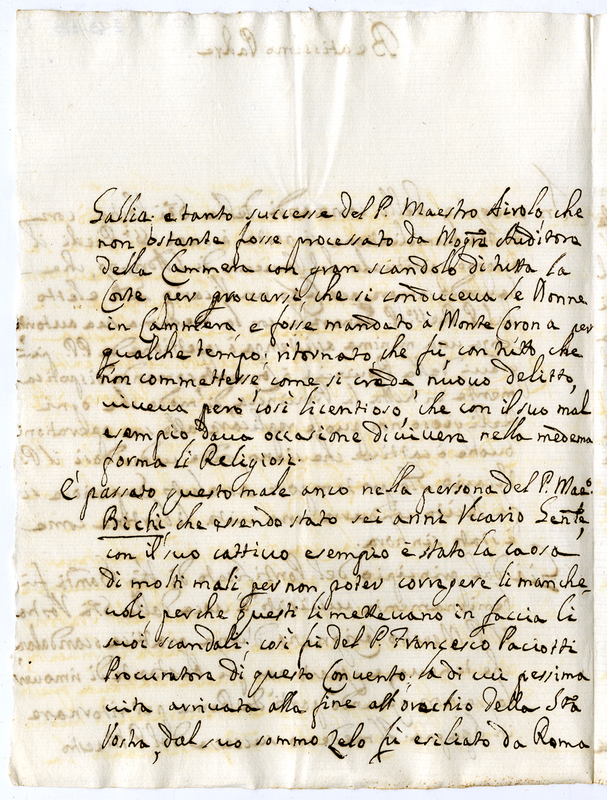 Gallia: e tanto successe del P. Maestro Airolo, che
non ostante fosse processato da Mogre Auditore
della Cammera con gran scandolo di tutta la
Corte per provarsi, che si conduceva le Donne
in Cammera e fosse mandato à Monte Corona per
qualche tempo; ritornato che fù, con tutto che
non commettesse, come si crede nuovo delitto,
viveva però così licentioso, che con il suo mal
esempio dava occasione di vivere nella medema
forma li Religiosi.
È passato questo male anco nella persona del P. Maeo.
Bichi che essendo stato sei anni Vicario Genle,
con il suo cattivo esempio è stato la caosa
di molti mali per non poter corregere li manche-
voli, perche questi li mettevano in faccia li
suoi scandali: così fù del P. Francesco Paciotti
Procuratore di questo Convento, la di cui pessima
vita arrivata alla fine all'orechio della Sta
Vostra, dal suo sommo zelo fù esiliato da Roma
Beatissimo Padre